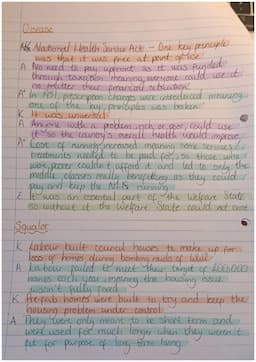 Disease
National Health Service Act - One key principle
was that it was free at point of use
A No need to pay upfront as it was funded
through taxation meaning everyone could use it
no matter their financial situation
A- In 1951, prescription charges were introduced meaning
one of the key principles was broken
K It was universal
A Anyone with a problem, rich or poor, could use
it so the country's overall health would improve
A- Cost of running increased meaning some services/
treatments needed to be paid for, so those who
were poorer couldn't afford it and led to only the
middle classes really benefitting as they could
pay and keep the NHS running
E It was an essential part of the Welfare State
so without it the Welfare State could not
Squalor
K Labour built council houses to make up for
loss of homes during bombing raids of WW2
A Labour failed to meet their target of 200,000
homes each year, meaning the housing issue
wasn't fully fixed
K Pre-fab homes were built to try and keep the
housing problem under control
A They were only meant to be short term and
were used for much longer when they weren't
fit for purpose of long time living